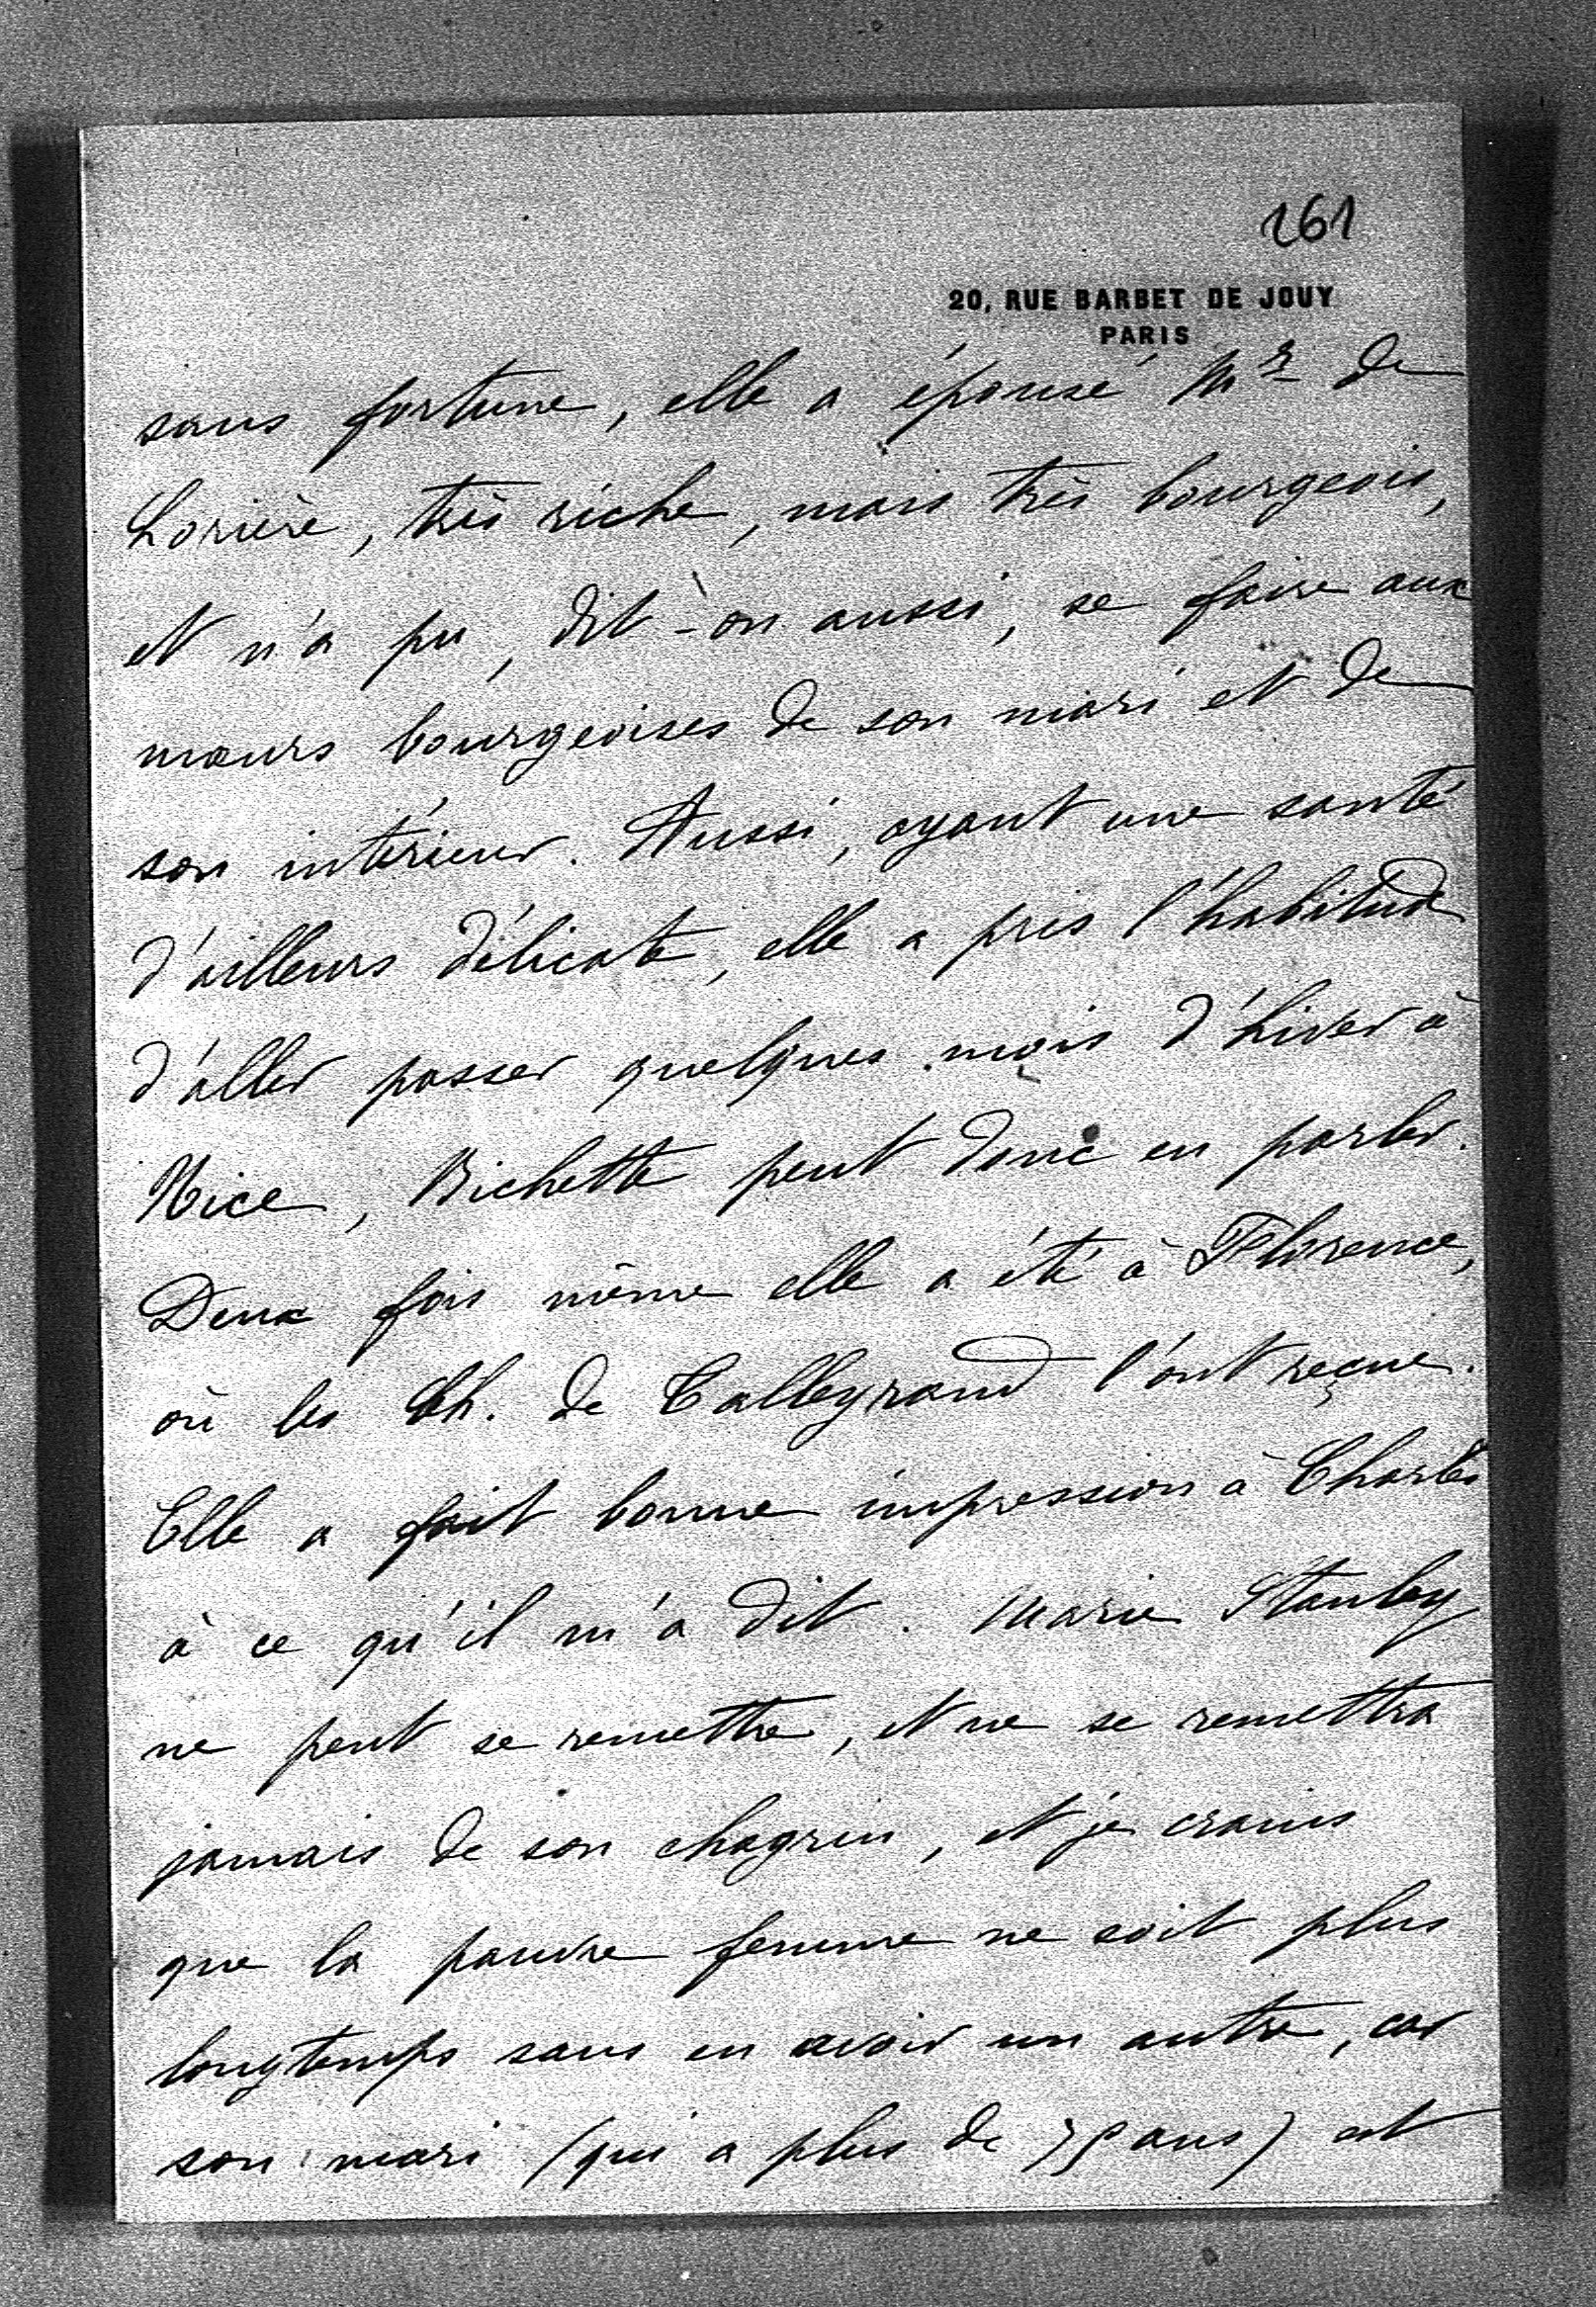 161
20, RUE BARBET DE JOUY
PARIS
sans fortune, elle a épousé Mr de
Lorière, très riche, mais très bourgeois,
et n'a pu, dit-on aussi, se faire aux
mœurs bourgeoises de son mari et de
son intérieur. Aussi, ayant une santé
d'ailleurs délicate, elle a pris l'habitude
d'aller passer quelques mois d'hiver à
Nice, Bichette peut donc en parler.
Deux fois même elle a été à Florence,
où les Ch. de Talleyrand l'ont reçue.
Elle a fait bonne impression à Charles
à ce qu'il m'a dit. Marie Stanley
ne peut se remettre, et ne se remettra
jamais de son chagrin, et je crains
que la pauvre femme ne soit plus
longtemps sans en avoir un autre, car
son mari (qui a plus de 75 ans) est